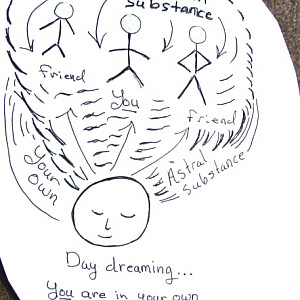 substance
friend
You
friend
Your
own
Astral
substance
Day dreaming...
You are in your own